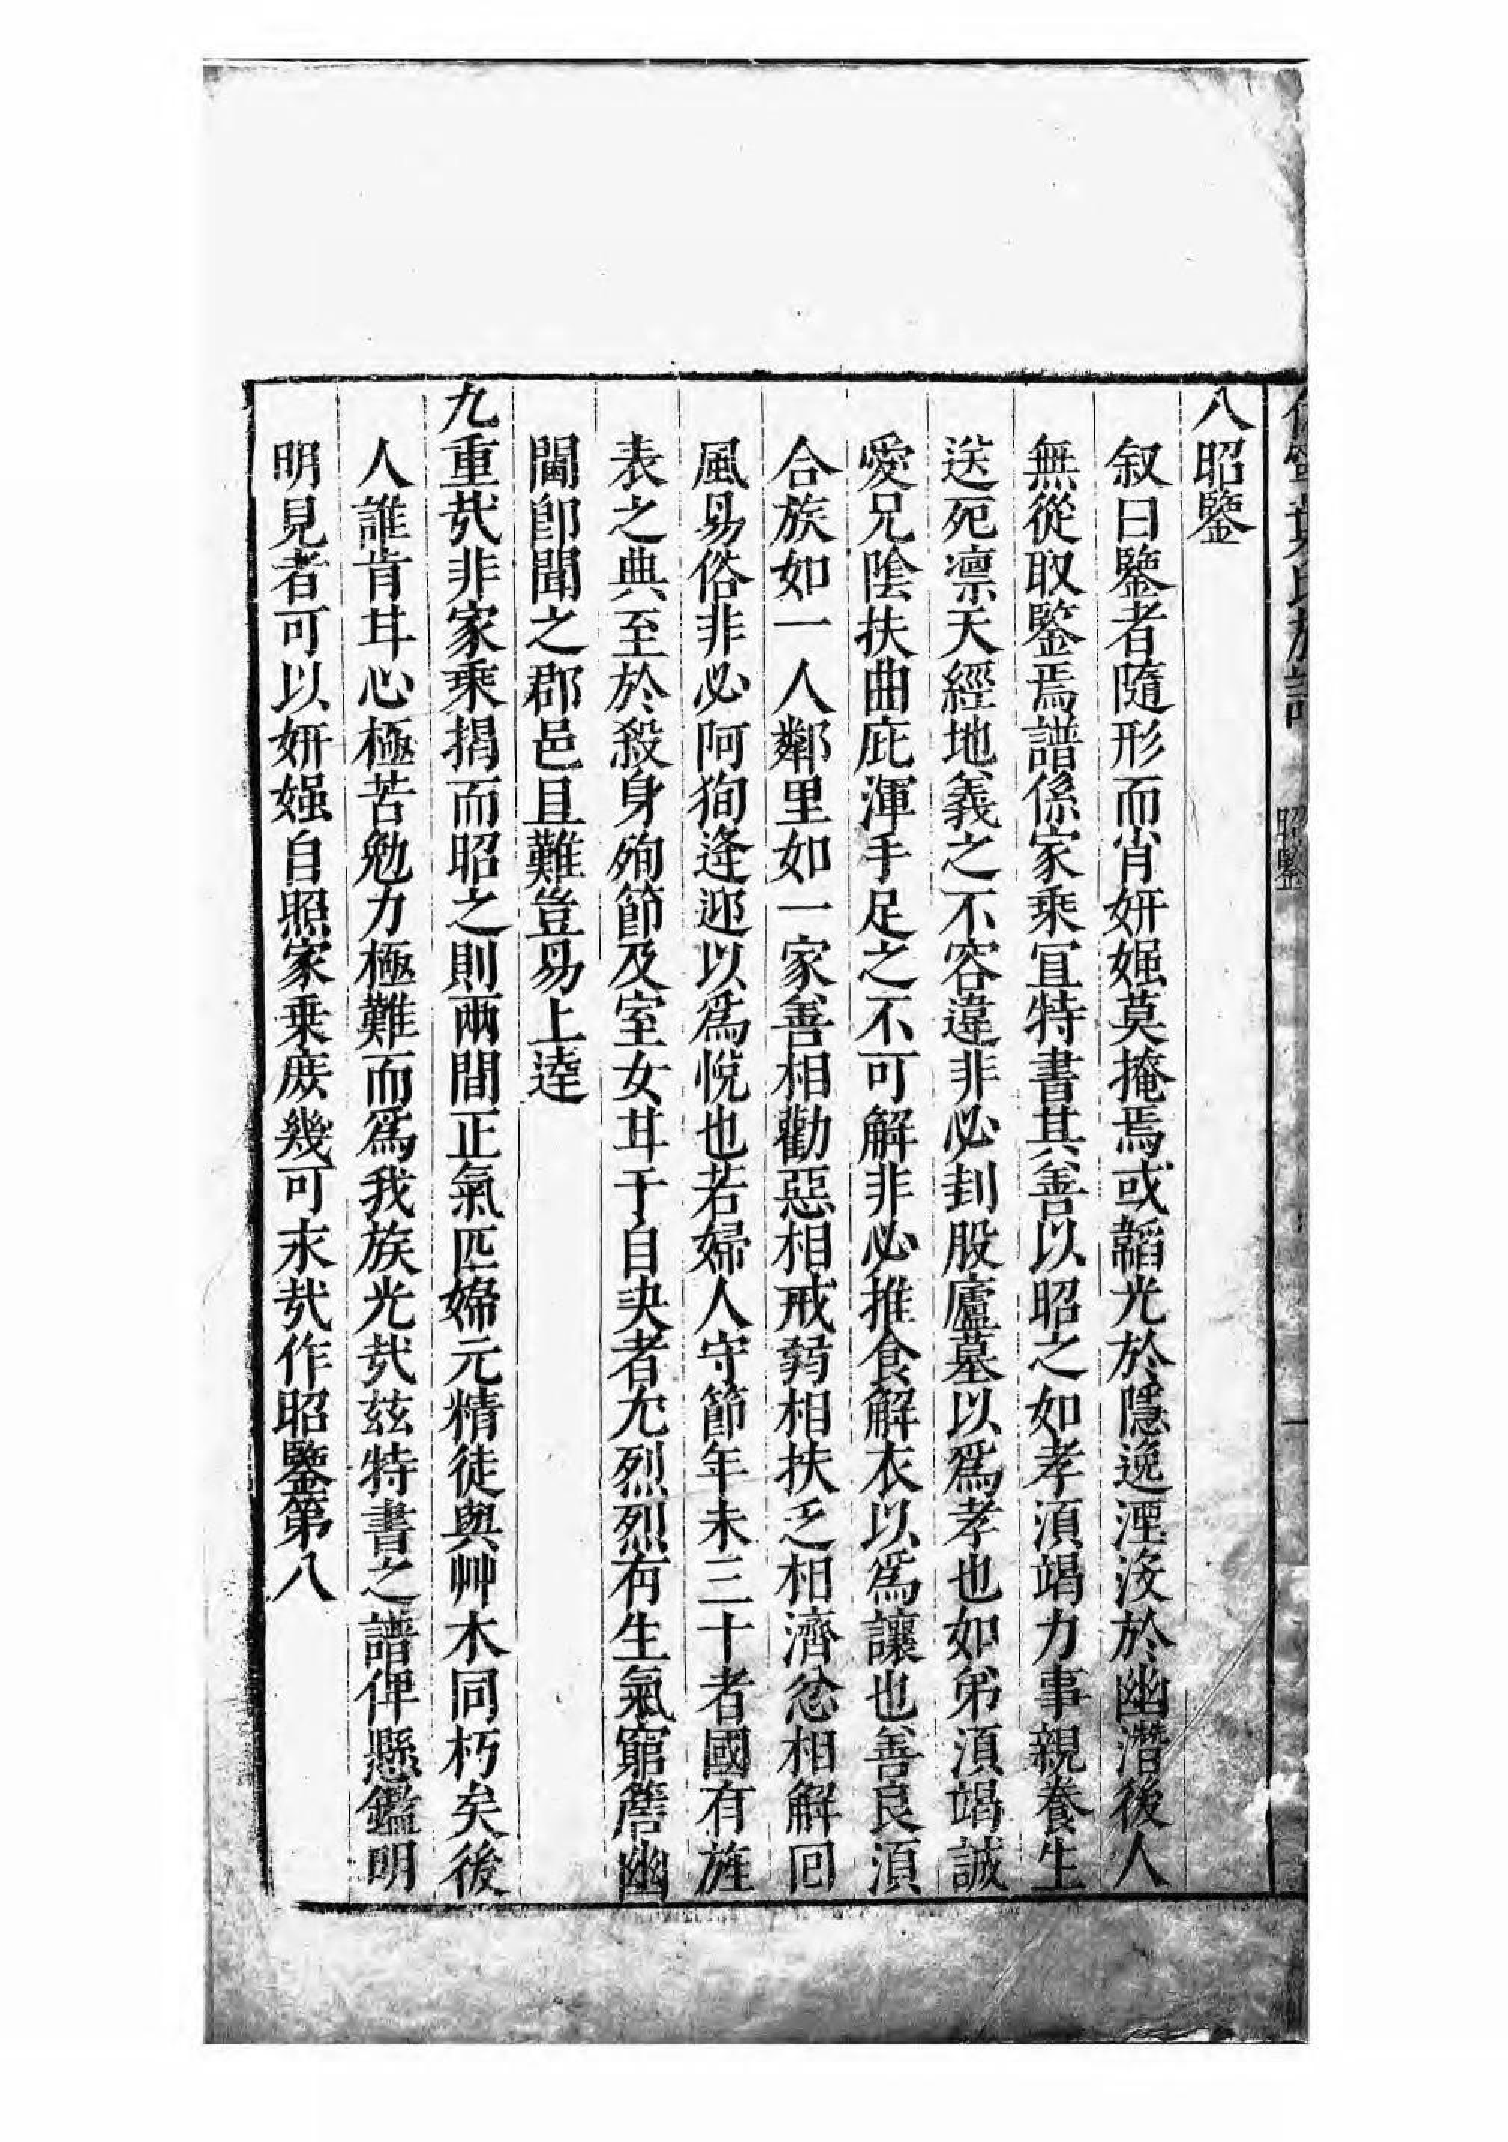 八昭鑒
叙曰鑒者隨形而肖妍媸莫掩焉或韜光於隱逸湮沒於幽潛後人
無從取鑒焉譜係家乘冝特書其善以昭之如孝湏竭力事親養生
送死凛天經地義之不容違非必刲股廬墓以爲孝也如弟湏竭誠
愛兄陰扶曲庇渾手足之不可解非必推食解衣以爲讓也善良湏
合族如一人鄰里如一家善相勸惡相戒弱相扶乏相濟忿相解囘
風易俗非必阿狥逢迎以爲悅也若婦人守節年未三十者國有旌
表之典至於殺身殉節及室女甘于自决者尤烈烈有生氣窮簷幽
閫卽聞之郡邑且難豈易上逹
九重㢤非家乘揭而昭之則兩間正氣匹婦元精徒與艸木同朽矣後
人誰肯甘心極苦勉力極難而爲我族光㢤兹特書之譜俾懸鑑明
明見者可以妍媸自照家乗庻幾可求㢤作昭鑒第八
昭鑒
一